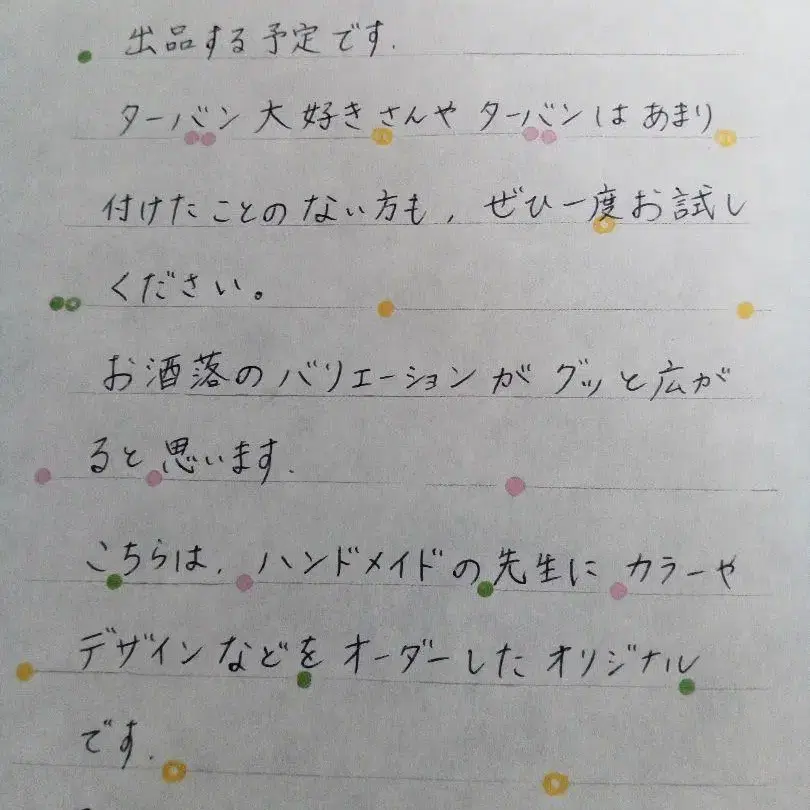 出品する予定です.
ターバン大好きさんや ターバンは あまり
付けたことの ない方も, ぜひ一度お試し
ください。
お洒落の バリエーションが グッと広が
ると思います.
こちらは, ハンドメイドの先生に カラーや
デザインなどを オーダーした オリジナル
です.